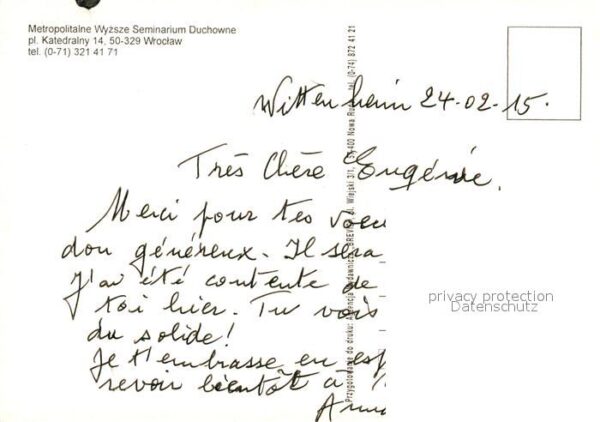 Metropolitalne Wyzsze Seminarium Duchowne
pl. Katedralny 14, 50-329 Wrocław
tel. (0-71) 321 41 71
Wittenheim 24-02-15.
Très Chère Eugénie,
Merci pour tes voeu
don généreux. Il sera
J'ai été contente de
toi hier. Tu vois
du solide!
Je t'embrasse en esp
revoir bientôt à
Anna
privacy protection
Datenschutz
Przygotowanie do druku:
400 Nowa Ruda, tel. (0-74) 872 41 21